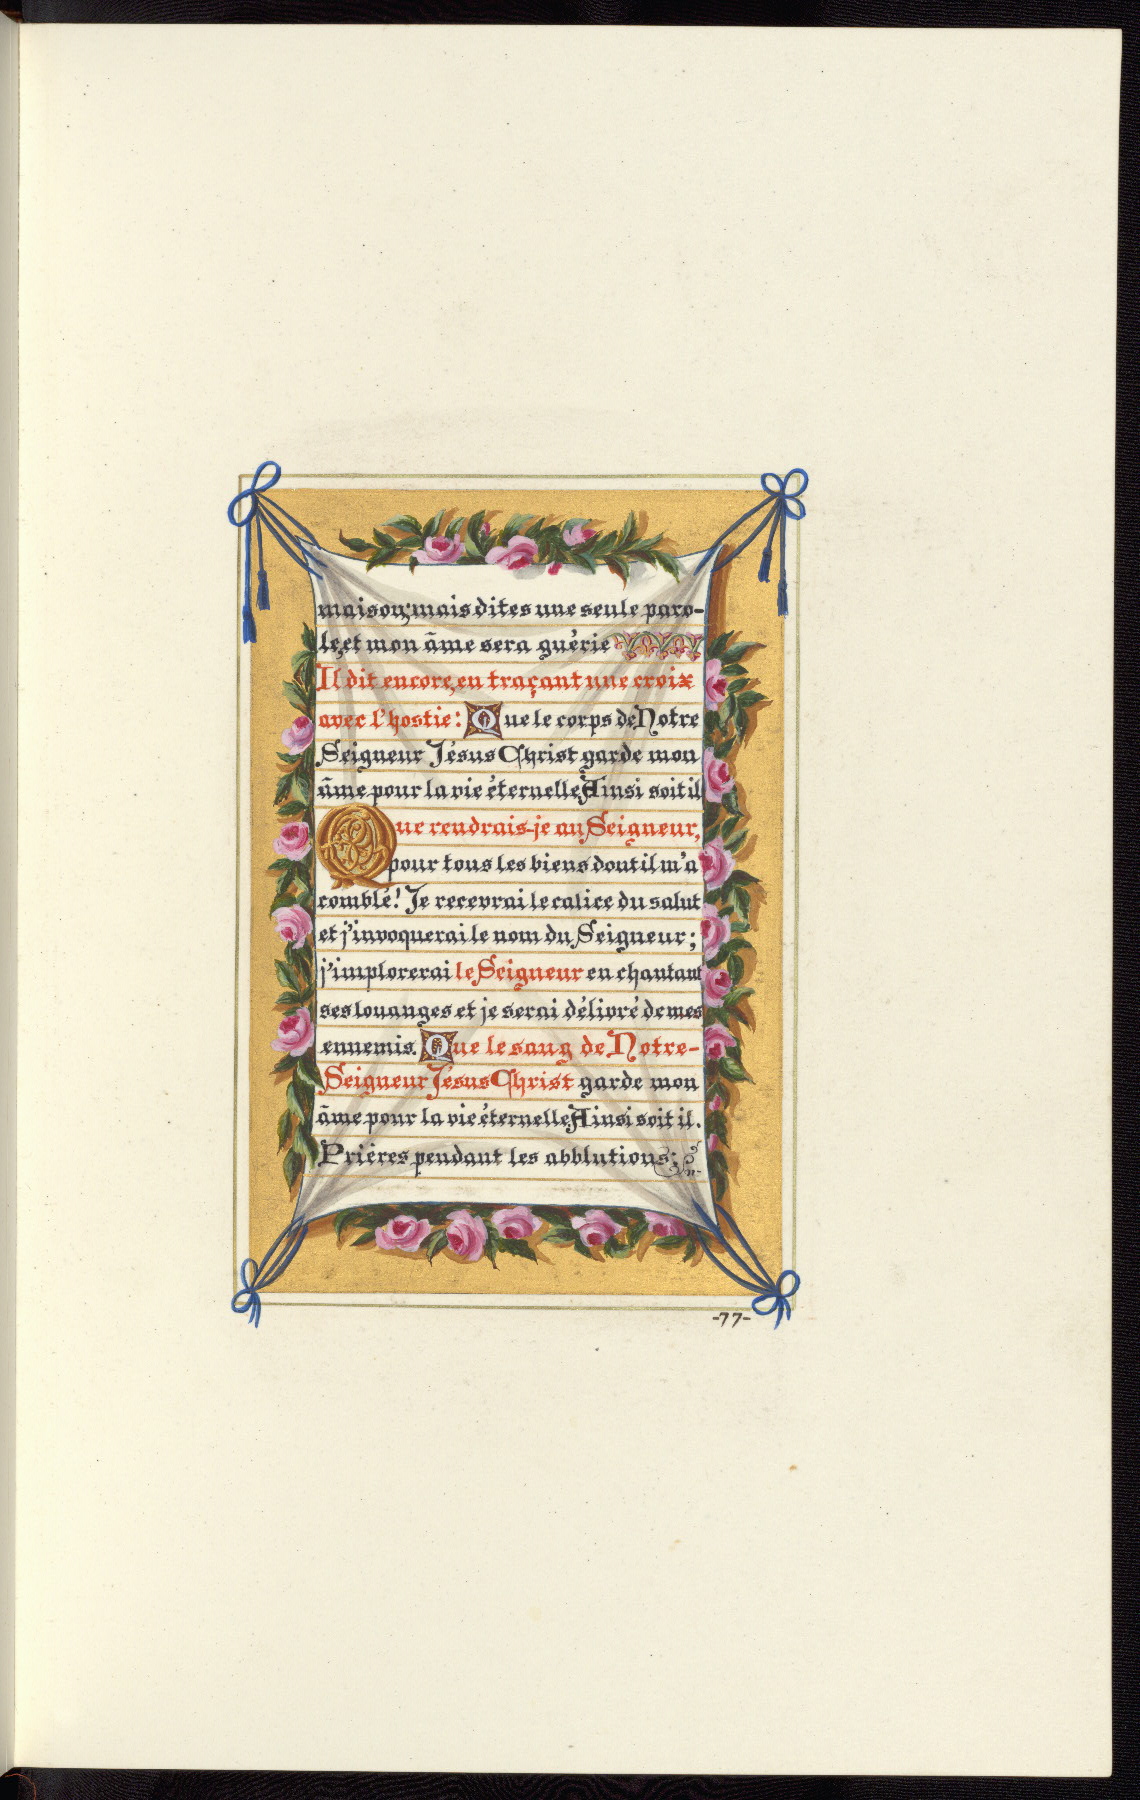 maison; mais dites une seule paro-
le, et mon âme sera guérie
Il dit encore, en traçant une croix
avec l'hostie: Que le corps de Notre
Seigneur Jésus Christ garde mon
âme pour la vie éternelle, Ainsi soit il
Que rendrais-je au Seigneur,
pour tous les biens dont il m'a
comblé! Je recevrai le calice du salut
et j'invoquerai le nom du Seigneur;
j'implorerai le Seigneur en chantant
ses louanges et je serai délivré de mes
ennemis. Que le sang de Notre-
Seigneur Jésus Christ garde mon
âme pour la vie éternelle, Ainsi soit il.
Prières pendant les abblutions:
-77-